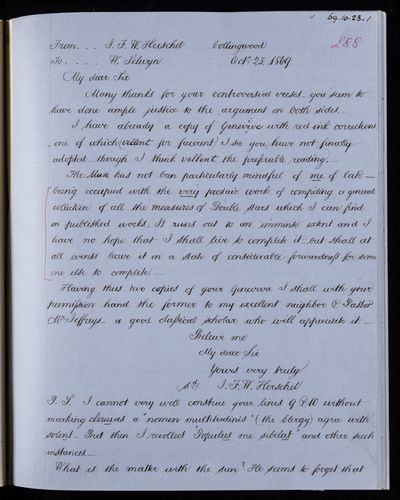 69.10.23./
L88
From... J. F. W. Herschel Collingwood
To..... W. Selwyn Oct. 23, 1869
My dear Sir
Many thanks for your controversial verses - you seem to
have done ample justice to the argument on both sides. -
I have already a copy of Genevive with red ink corrections
one of which (vellent for facerent) I see you have not finally
adopted - though I think vellent the preferable reading. -
The Muse has not been particularly mindful of me of late -
being occupied with the very prosaic work of compiling a general
collection of all the measures of Double stars which I can find
in published works. It runs out to an immense extent and I
have no hope that I shall live to complete it - but shall at
all events leave it in a state of considerable forwardness for some
one else to complete. -
Having thus two copies of your Genevieve I shall with your
permission hand the former to my excellent neighbor & Pastor
Mr Jeffreys - a good classical scholar who will appreciate it -
Believe me
My dear Sir
Yours very truly
J. F. W. Herschel
P. S. I cannot very well construe your lines 9 & 10 without
marking clerus as a "nomen multitudinis" (the Clergy) agre with
solent - But then I recollect Populus me sibilat and other such
instances -
What is the matter with the sun? He seems to forget that